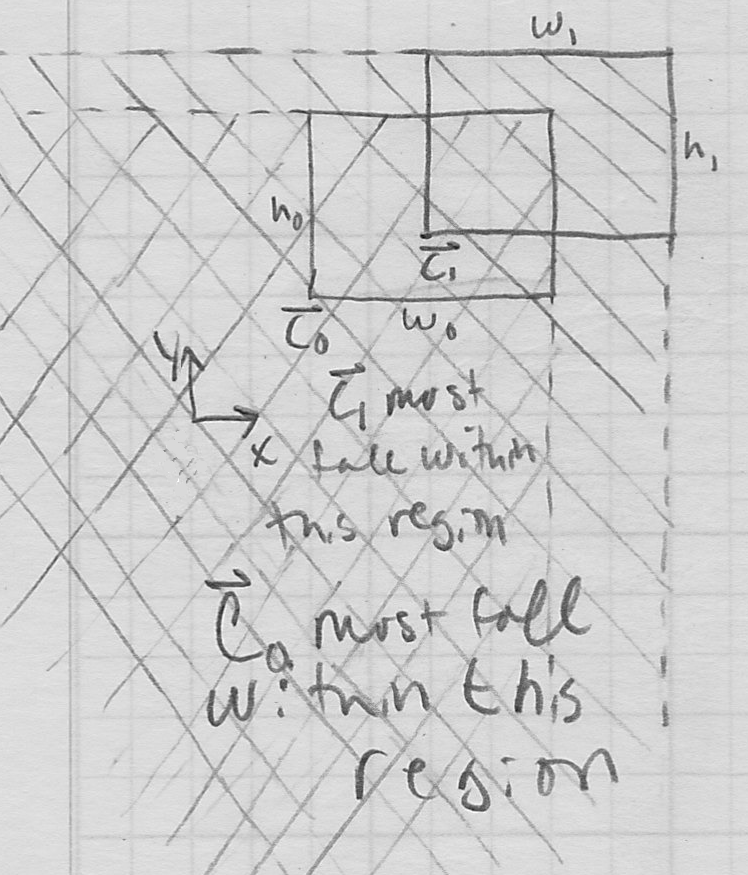 w₁
h₁
h₀
C⃗₁
C⃗₀
w₀
y
x
C⃗₁ must
fall within
this region
C⃗₀ must fall
within this
region